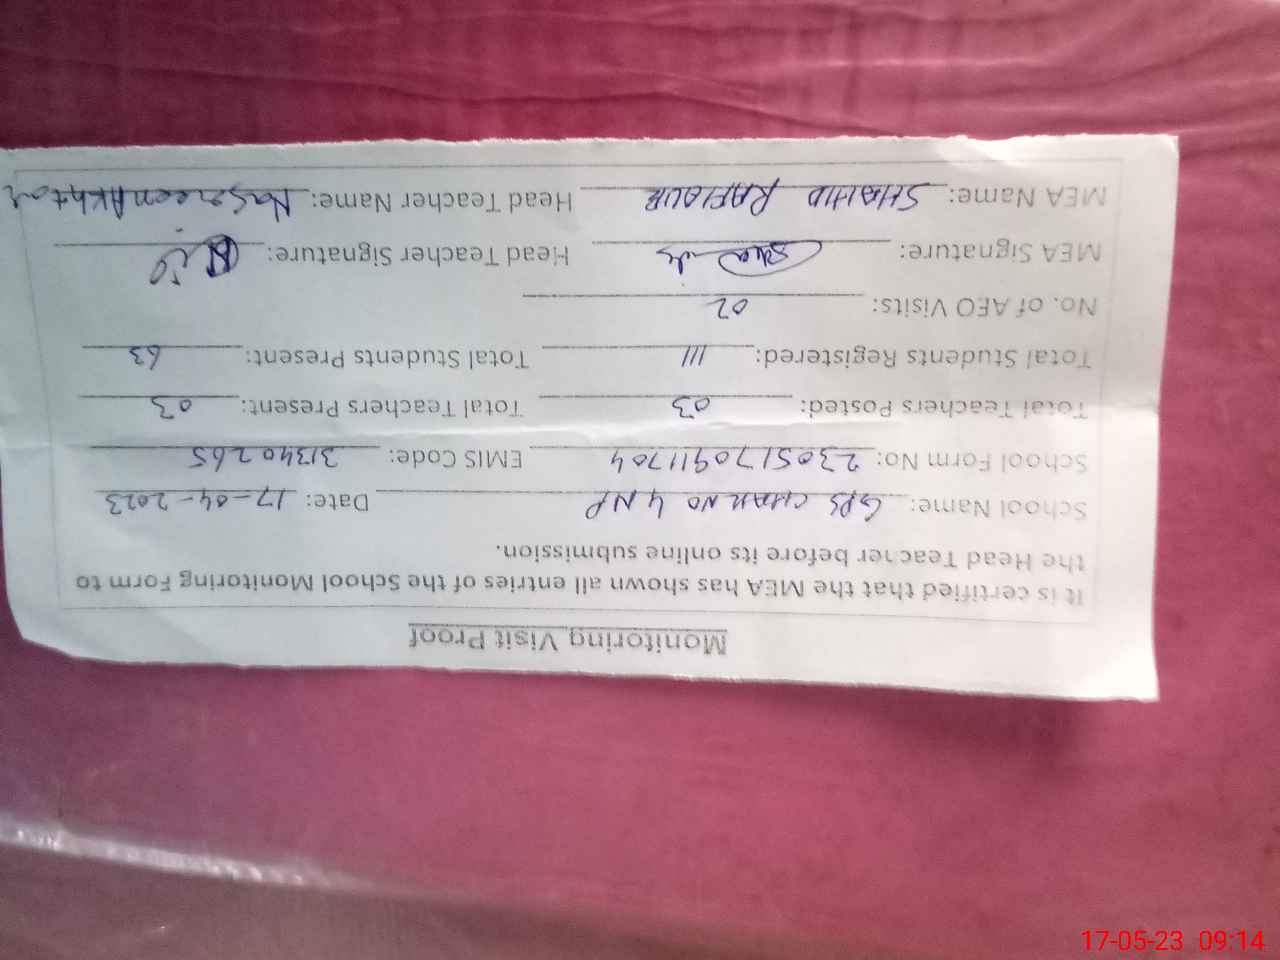 Monitoring Visit Proof
It is certified that the MEA has shown all entries of the School Monitoring Form to
the Head Teacher before its online submission.
School Name: GPS CHAK NO 4 NP Date: 17-04-2023
School Form No: 2305170911704 EMIS Code: 31340265
Total Teachers Posted: 03 Total Teachers Present: 03
Total Students Registered: 111 Total Students Present: 63
No. of AEO Visits: 02
MEA Signature: Head Teacher Signature:
MEA Name: SHAHID Head Teacher Name: Nasreen Akhtar
17-05-23 09:14